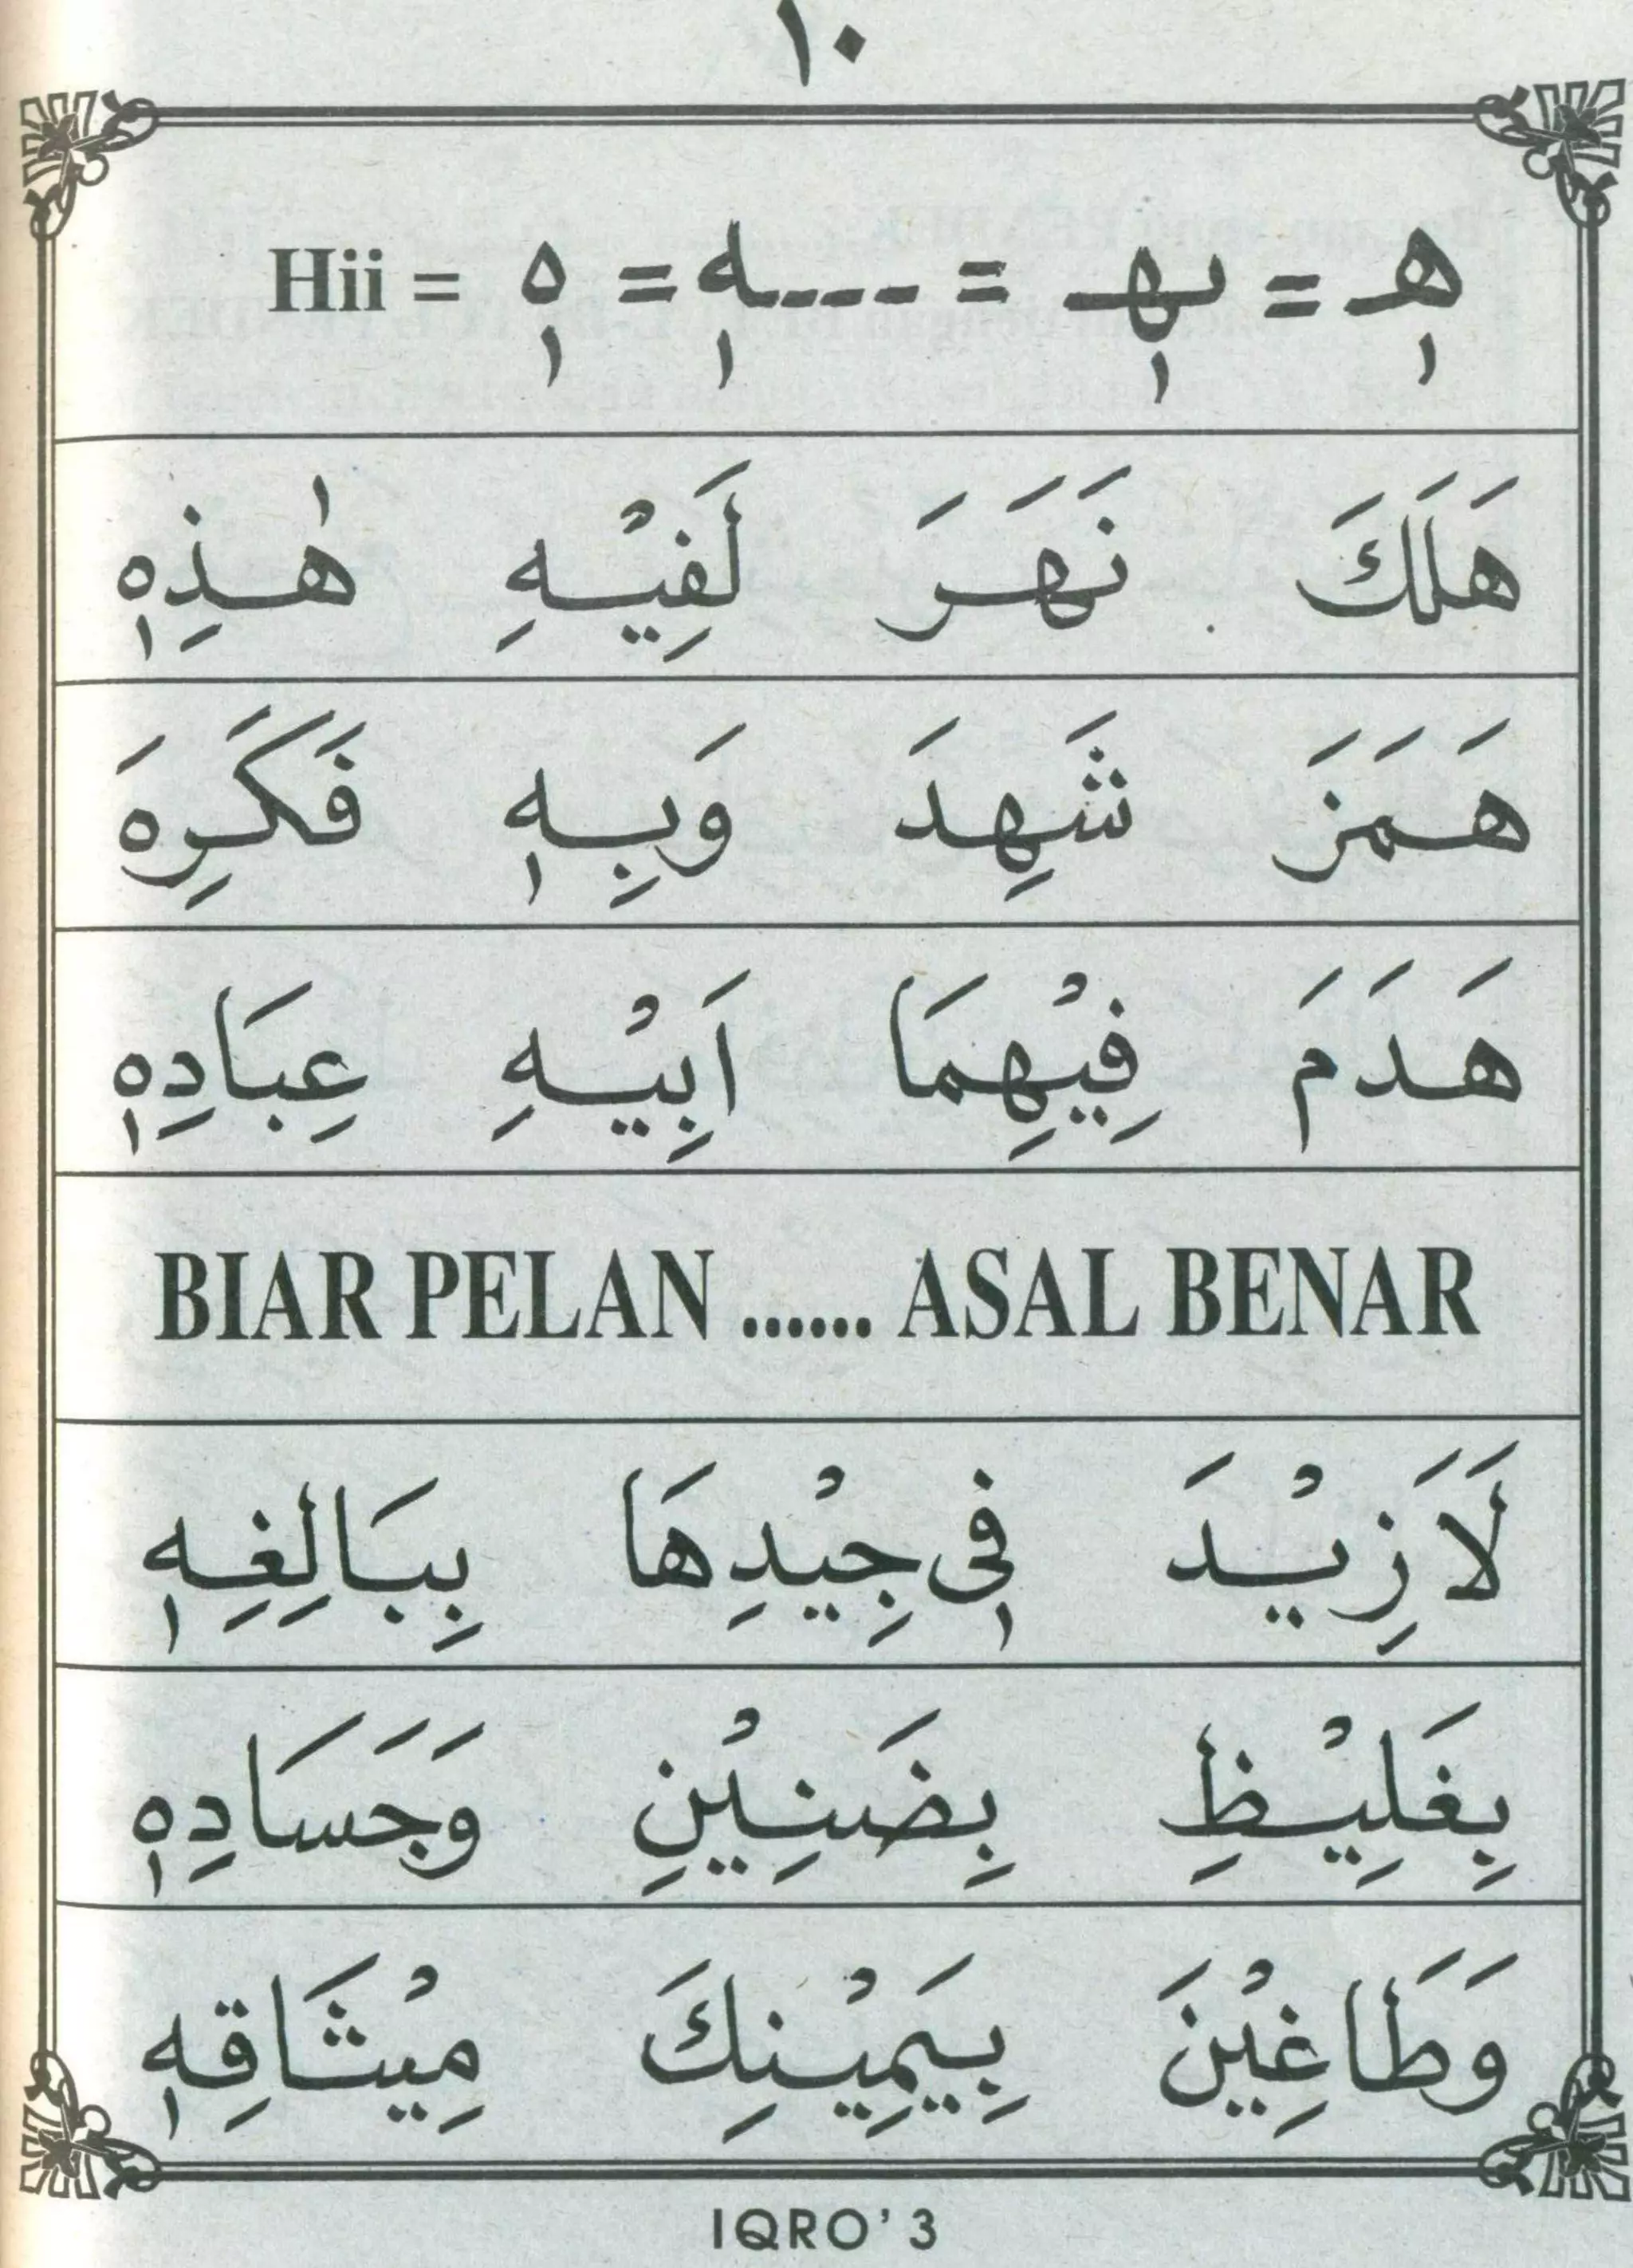 ١٠
هٖ = ـهٖـ = ....ـهٖ = هٖ = Hii
هَلَكَ نَهَرَ لَفِيْهِ هٰذِهٖ
هَمَزَ شَهِدَ وَبِهٖ فَكَرِهَ
هَدَمَ فِيْهِمَا اَبِيْهِ عِبَادِهٖ
BIAR PELAN ...... ASAL BENAR
لَاَزِيْدَ فِىٖ جِيْدِهَا بِبَالِغِهٖ
بِغَلِيْظِ بِضَنِيْنِ وَجَسَادِهٖ
وَطَاغِيْنَ بِيَمِيْنِكَ مِيْثَاقِهٖ
IQRO' 3